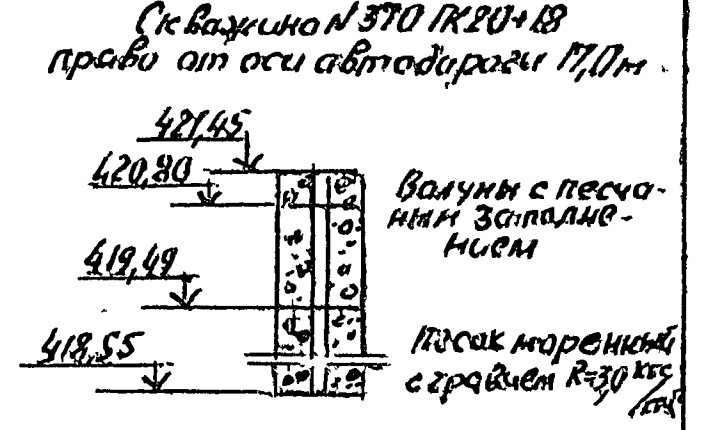 Скважина N 370 ПК20+18
право от оси автодороги 17,0м
421,45
420,80
Валуны с песча-
ным заполне-
нием
419,49
418,55
Песок моренный
с гравием R=3,0 кгс/см²